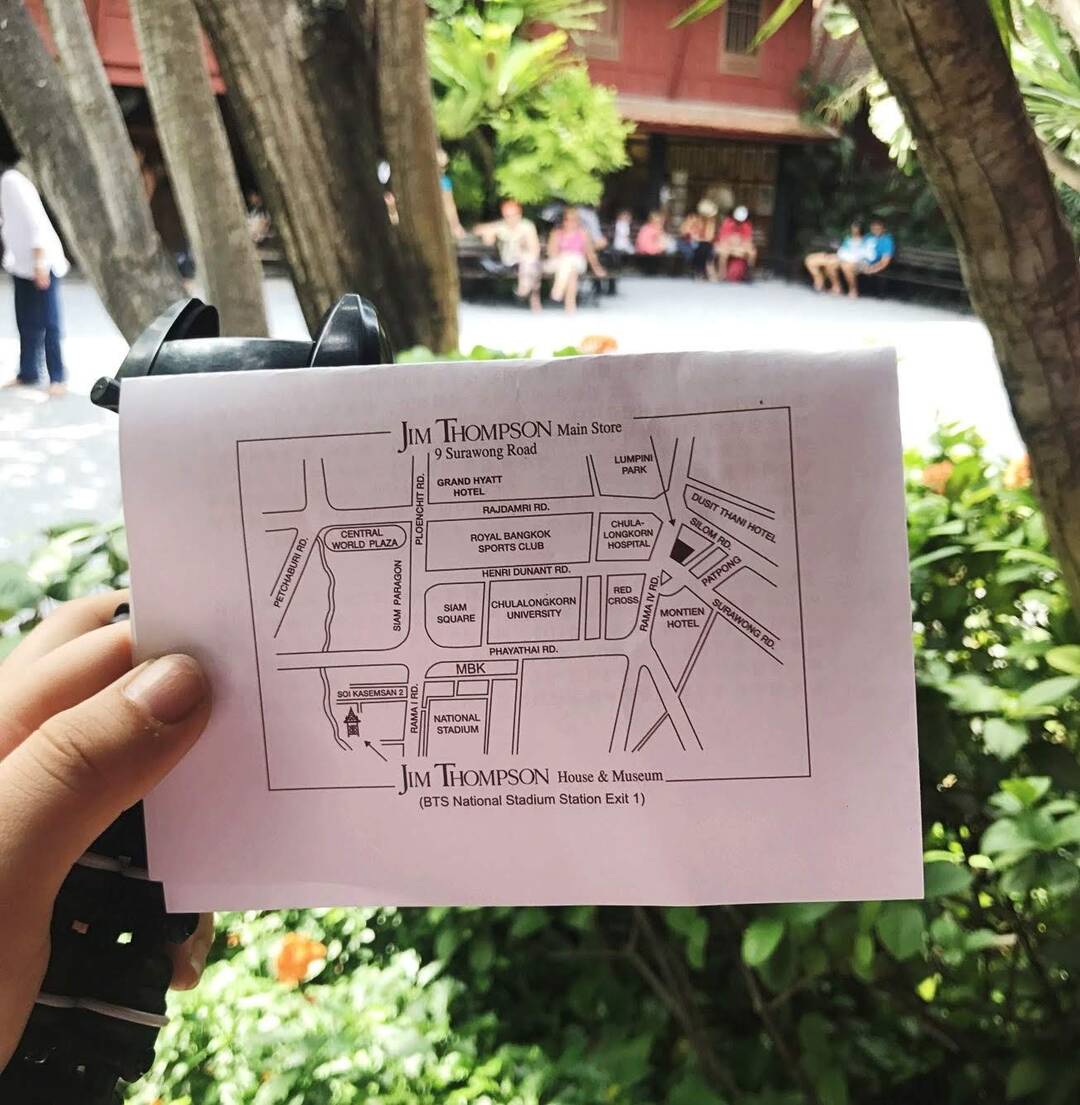 JIM THOMPSON Main Store
9 Surawong Road
LUMPINI
PARK
GRAND HYATT
HOTEL
PLOENCHIT RD.
RAJDAMRI RD.
DUSIT THANI HOTEL
SILOM RD.
CENTRAL
WORLD PLAZA
ROYAL BANGKOK
SPORTS CLUB
CHULA-
LONGKORN
HOSPITAL
PETCHABURI RD.
PATPONG
HENRI DUNANT RD.
SIAM PARAGON
SIAM
SQUARE
CHULALONGKORN
UNIVERSITY
RED
CROSS
RAMA IV RD.
MONTIEN
HOTEL
SURAWONG RD.
PHAYATHAI RD.
MBK
SOI KASEMSAN 2
RAMA I RD.
NATIONAL
STADIUM
JIM THOMPSON House & Museum
(BTS National Stadium Station Exit 1)